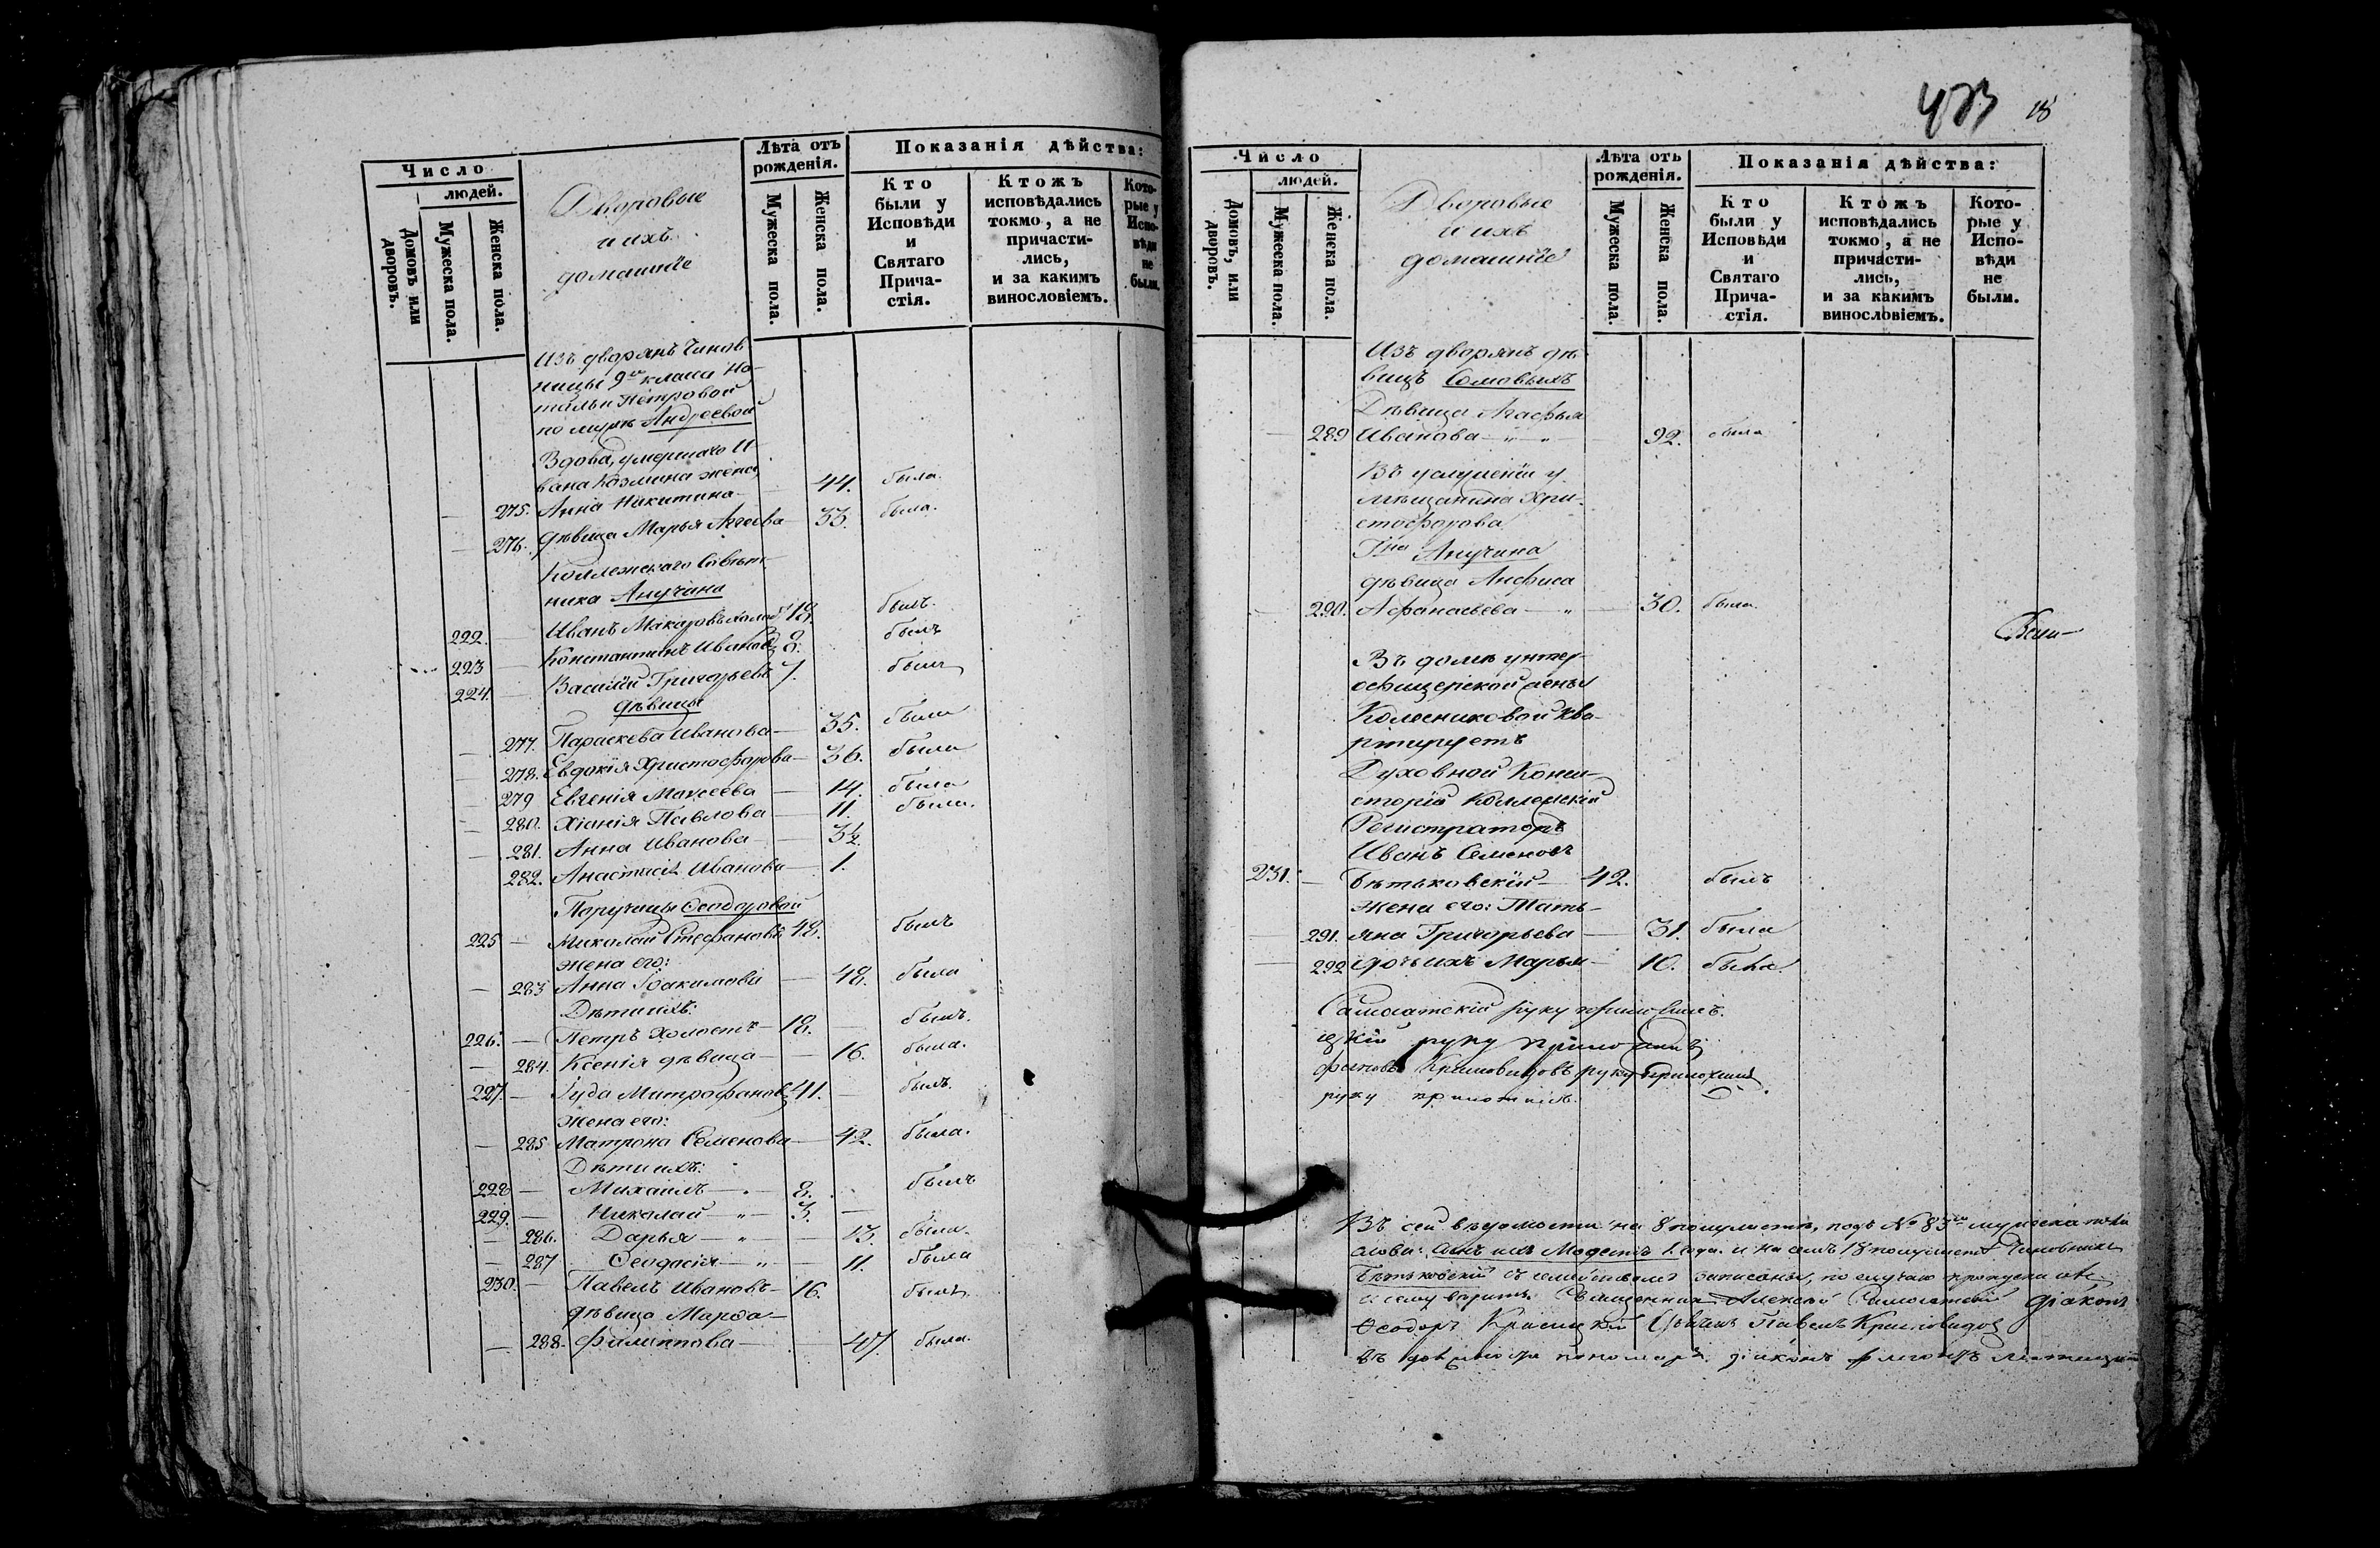 Число
людей.
Домовъ или дворовъ.
Мужеска пола.
Женска пола.
Дворовые
и ихъ
домашніе
Лѣта отъ рожденія.
Мужеска пола.
Женска пола.
Показанія дѣйства:
Кто были у Исповѣди и Святаго Прича-стія.
Ктожъ исповѣдались токмо, а не причасти-лись, и за какимъ винословіемъ.
Кото-рые у Испо-вѣди не были.
Изъ дворянъ Чинов
ницы 9го класа На-
тальи Петровой
по мужѣ Андреевой
Вдова, умершаго И-
вана Козмина жена,
275. Анна Никитина 44. была.
276. дѣвица Марья Агеева 33. была.
Коллежскаго Совѣт-
ника Анучина
222. Иванъ Макаровъ холост 18. былъ.
223 Константинъ Ивановъ 8. былъ
224. Василій Григорьевъ 7. былъ
дѣвицы
277. Параскева Иванова 35. была
278. Евдокія Христофорова 36. была
279 Евгенія Моисеева 14. была
280. Хіонія Павлова 11. была.
281. Анна Иванова 34.
282. Анастасія Иванова 1.
Поручицы Ѳеодоровой
225 Николай Стефановъ 48. былъ
жена его:
283 Анна Іоакимова 48. была
Дѣти ихъ:
226. Петръ холостъ 18. былъ.
284. Ксенія дѣвица 16. была.
227. Іуда Митрофановъ 41. былъ.
Жена его:
285 Матрона Семенова 42. была.
Дѣти ихъ:
228 Михаилъ 8. былъ
229. Николай 3.
286. Дарья 13. была.
287 Ѳеодосія 11. была
230. Павелъ Ивановъ 16. былъ.
дѣвица Марѳа
288. Филиппова 47 была.
423 18
Число
людей.
Домовъ, или дворовъ.
Мужеска пола.
Женска пола.
Дворовые
и ихъ
домашніе
Лѣта отъ рожденія.
Мужеска пола.
Женска пола.
Показанія дѣйства:
Кто были у Исповѣди и Святаго Прича-стія.
Ктожъ исповѣдались токмо, а не причасти-лись, и за какимъ винословіемъ.
Кото-рые у Испо-вѣди не были.
Изъ дворянъ дѣ
вицъ Сомовыхъ
Дѣвица Агафья
289 Иванова 92. была
Въ услуженіи у
мѣщанина Хри-
стофорова
Гна Анучина
дѣвица Анфиса
290. Афанасьева 30. была.
Въ домѣ унтер-
офицерской жены
Колесниковой ква-
ртируетъ
Духовной Конси-
сторіи Коллежскій
Регистраторъ
Иванъ Семеновъ
231. Бѣтьковскій 42. былъ
жена его: Тать-
291. яна Григорьева 31. была
292 дочь ихъ Марья 10. была.
руку приложилъ.
руку приложилъ
Крыловидовъ руку приложилъ
руку приложилъ.
Въ сей вѣдомости на 8 полулистѣ, подъ № 83мъ мужеска пола
слова: сынъ ихъ Модестъ 1 года. и на семъ 18 полулистѣ Чиновникъ
Бѣтьковскій съ семействомъ записаны, по случаю пропуска
Священникъ Алексѣй діаконъ
Ѳеодоръ Павелъ Крыловидовъ
діаконъ